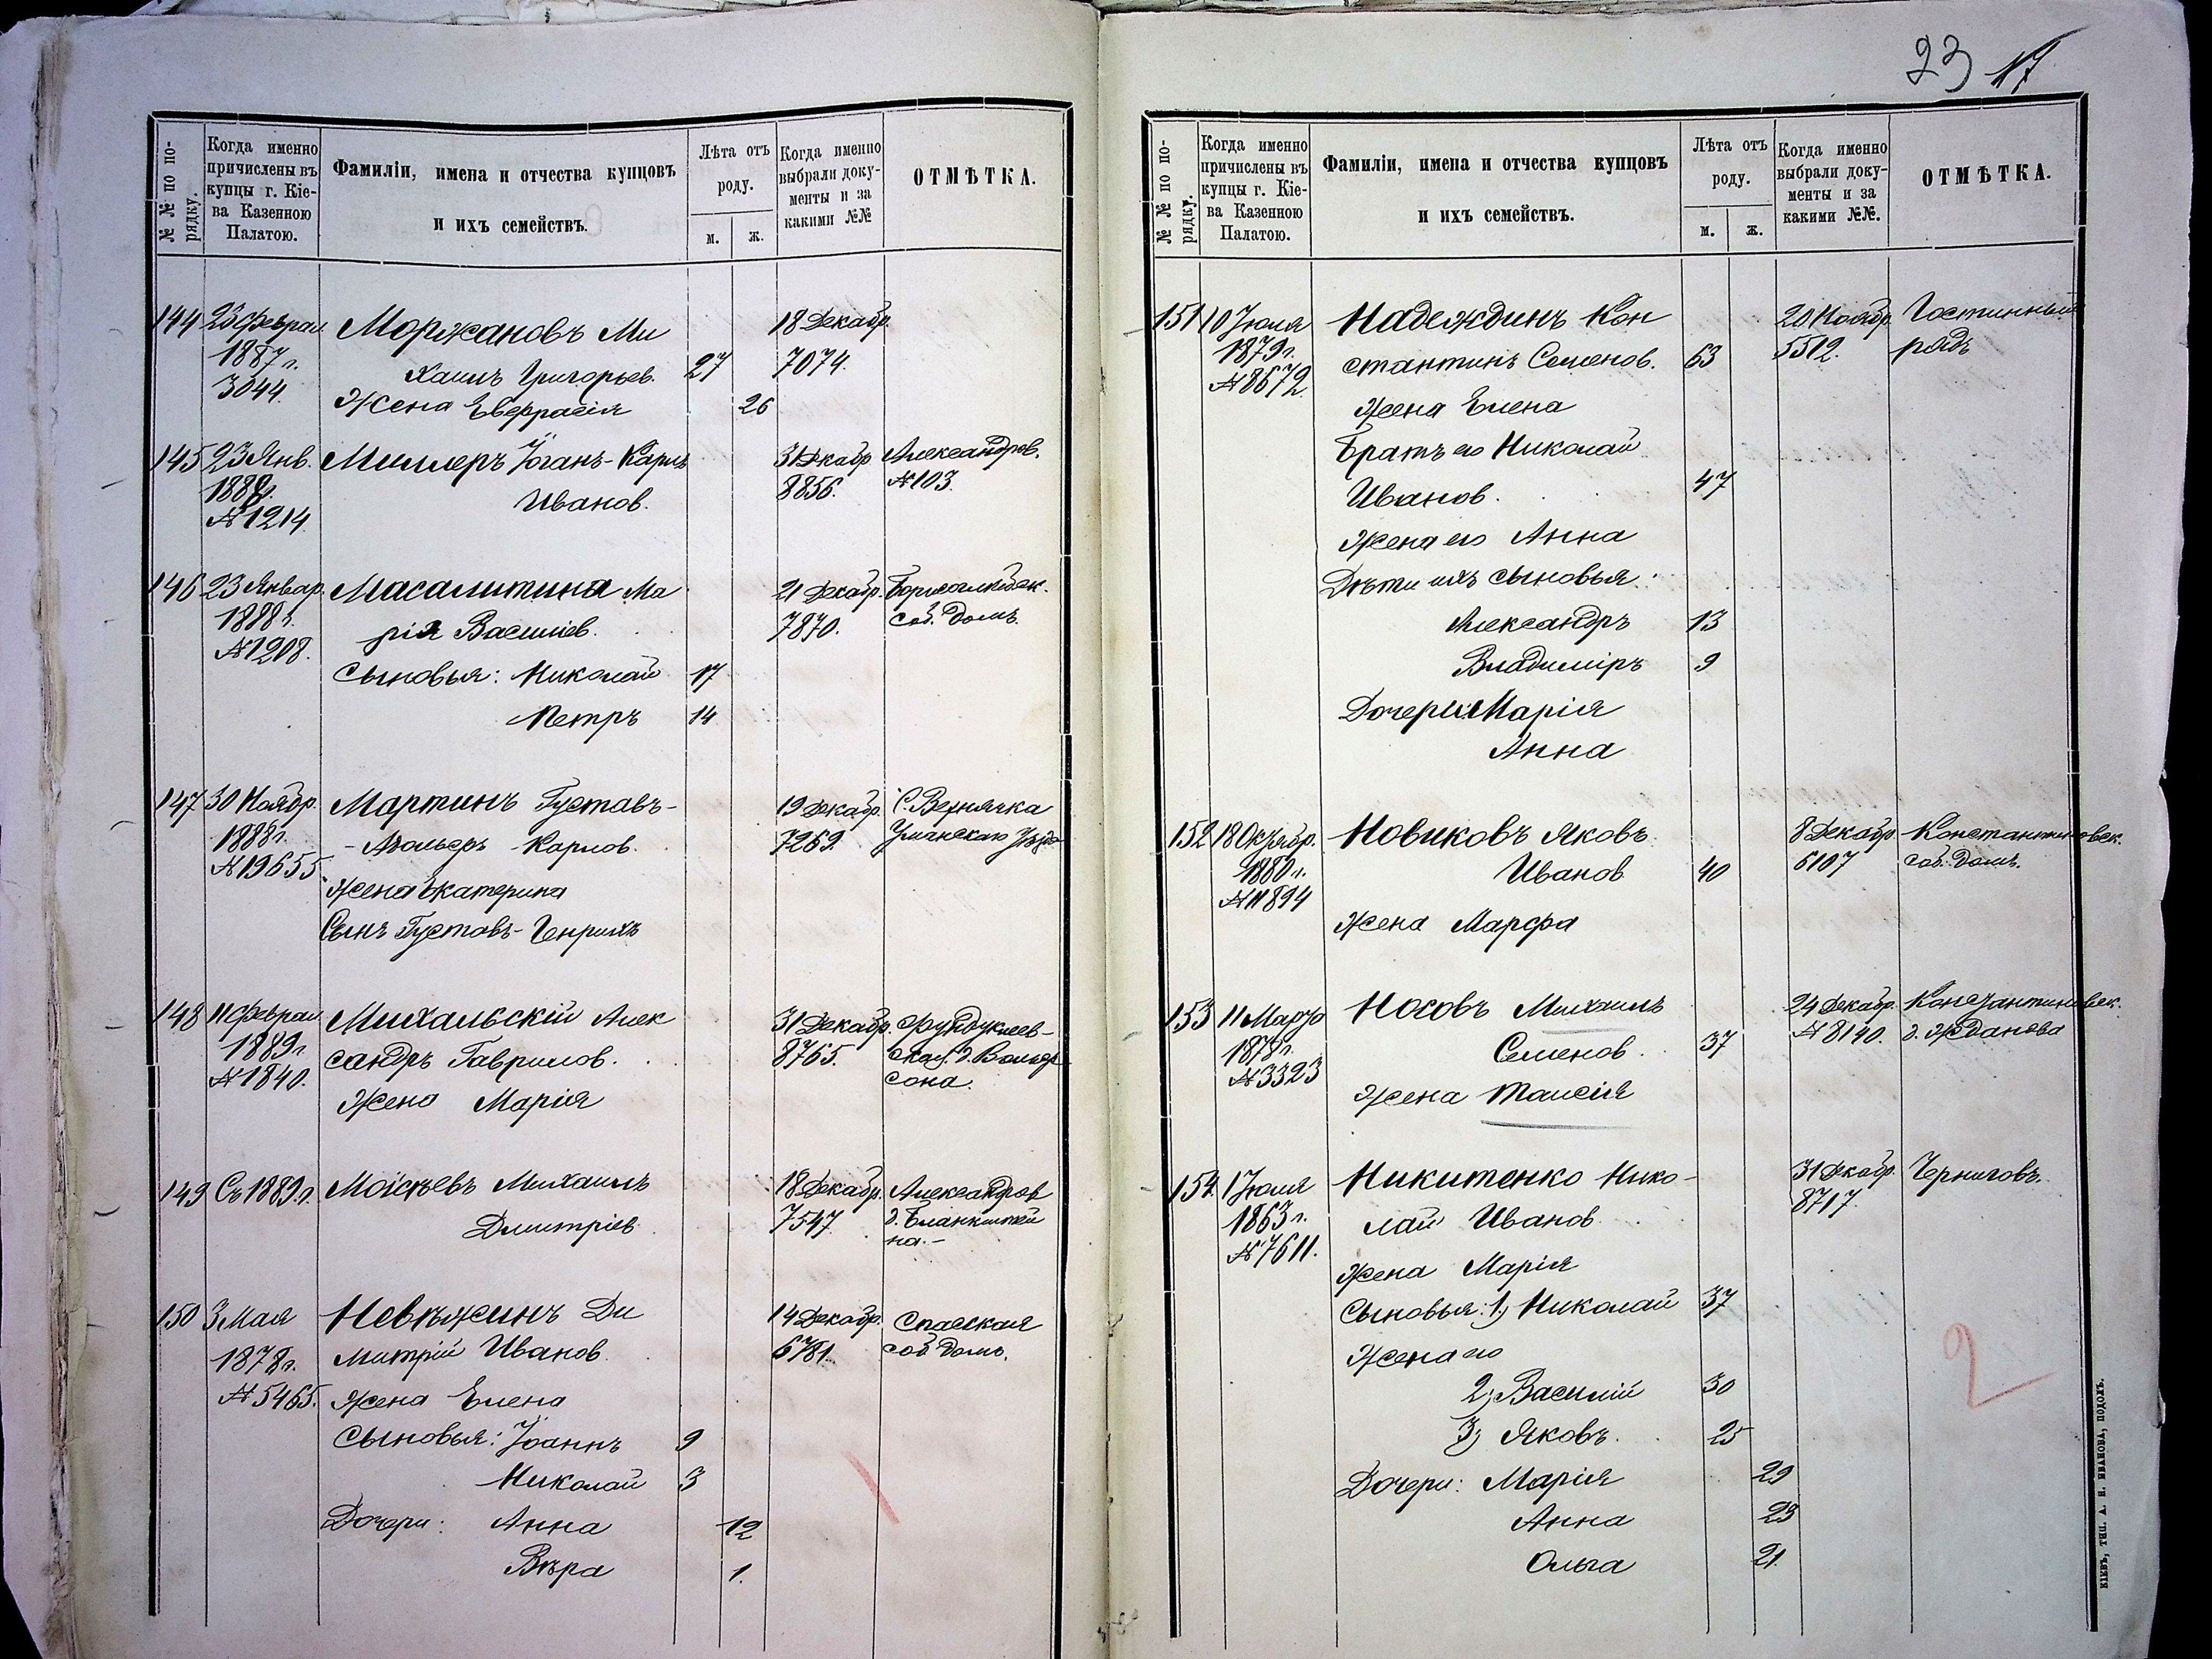 23 17
№ № по по-
рядку.
Когда именно
причислены въ
купцы г. Кіе-
ва Казенною
Палатою.
Фамиліи, имена и отчества купцовъ
и ихъ семействъ.
Лѣта отъ
роду.
м. ж.
Когда именно
выбрали доку-
менты и за
какими №№
ОТМѢТКА.
144 25 Феврал. Моржановъ Ми 18 Декабр.
1887 г. хаилъ Григорьев. 27 7074.
3044. Жена Евфрасія 26
145 23 Янв. Миллеръ Іоганъ-Карлъ 31 Декабр Александров.
188 г. Иванов. 8856. №103.
№1214
146 23 Январ. Масалитина Ма 21 Декабр. Борисоглѣбск.
1888 г. рія Василіев. 7870. соб. домъ.
№1208. Сыновья: Николай 17
Петръ 14
147 30 Ноябр. Мартинъ Густавъ- 19 Декабр. С. Верхнячка
1888 г. - Адольфъ Карлов. 7269. Уманскаго Уѣзда
№19655. Жена Екатерина
Сынъ Густавъ-Генрихъ
148 11 Феврал Михальскій Алек 31 Декабр. Фундуклеев-
1889 г сандръ Гаврилов. 8765. ская д.
№1840. Жена Марія сона.
149 Съ 1889 г. Моісѣевъ Михаилъ 18 Декабр. Александров
Дмитріев. 7547 д. Бланкштей
на.-
150 3 Мая Невѣжинъ Ди 14 Декабр. Спасская
1878 г. митрій Иванов. 6781. соб. домъ.
№5465. Жена Елена
Сыновья: Іоаннъ 9
Николай 3
Дочери: Анна 12
Вѣра 1.
№ № по по-
рядку.
Когда именно
причислены въ
купцы г. Кіе-
ва Казенною
Палатою.
Фамиліи, имена и отчества купцовъ
и ихъ семействъ.
Лѣта отъ
роду.
м. ж.
Когда именно
выбрали доку-
менты и за
какими №№.
ОТМѢТКА.
151 10 Іюля Надеждинъ Кон 20 Ноябр. Гостинный
1879 г. стантинъ Семенов. 63 5512. рядъ
№8672. Жена Елена
Братъ его Николай
Иванов. 47
Жена его Анна
Дѣти ихъ сыновья.
Александръ 13
Владиміръ 9
Дочери: Марія
Анна
152 18 Октябр. Новиковъ Яковъ 8 Декабр. Константиновск.
1880 г. Иванов 40 6107 соб. домъ.
№11894
Жена Марфа
153 11 Марта Носовъ Михаилъ 24 Декабр. Константиновск.
1878 г. Семенов. 37 №8140. д. Жданова
№3323
Жена Таисія
154. 1 Іюля Никитенко Нико- 31 Декабр. Черниговъ.
1863 г. лай Иванов. 8717.
№7611.
Жена Марія
Сыновья: 1) Николай 37
Жена его
2) Василій 30
3) Яковъ. 25
Дочери: Марія 29
Анна 23
Ольга 21.
2
КІЕВЪ, ТИП. А. Н. ИВАНОВА, ПОДОЛЪ.